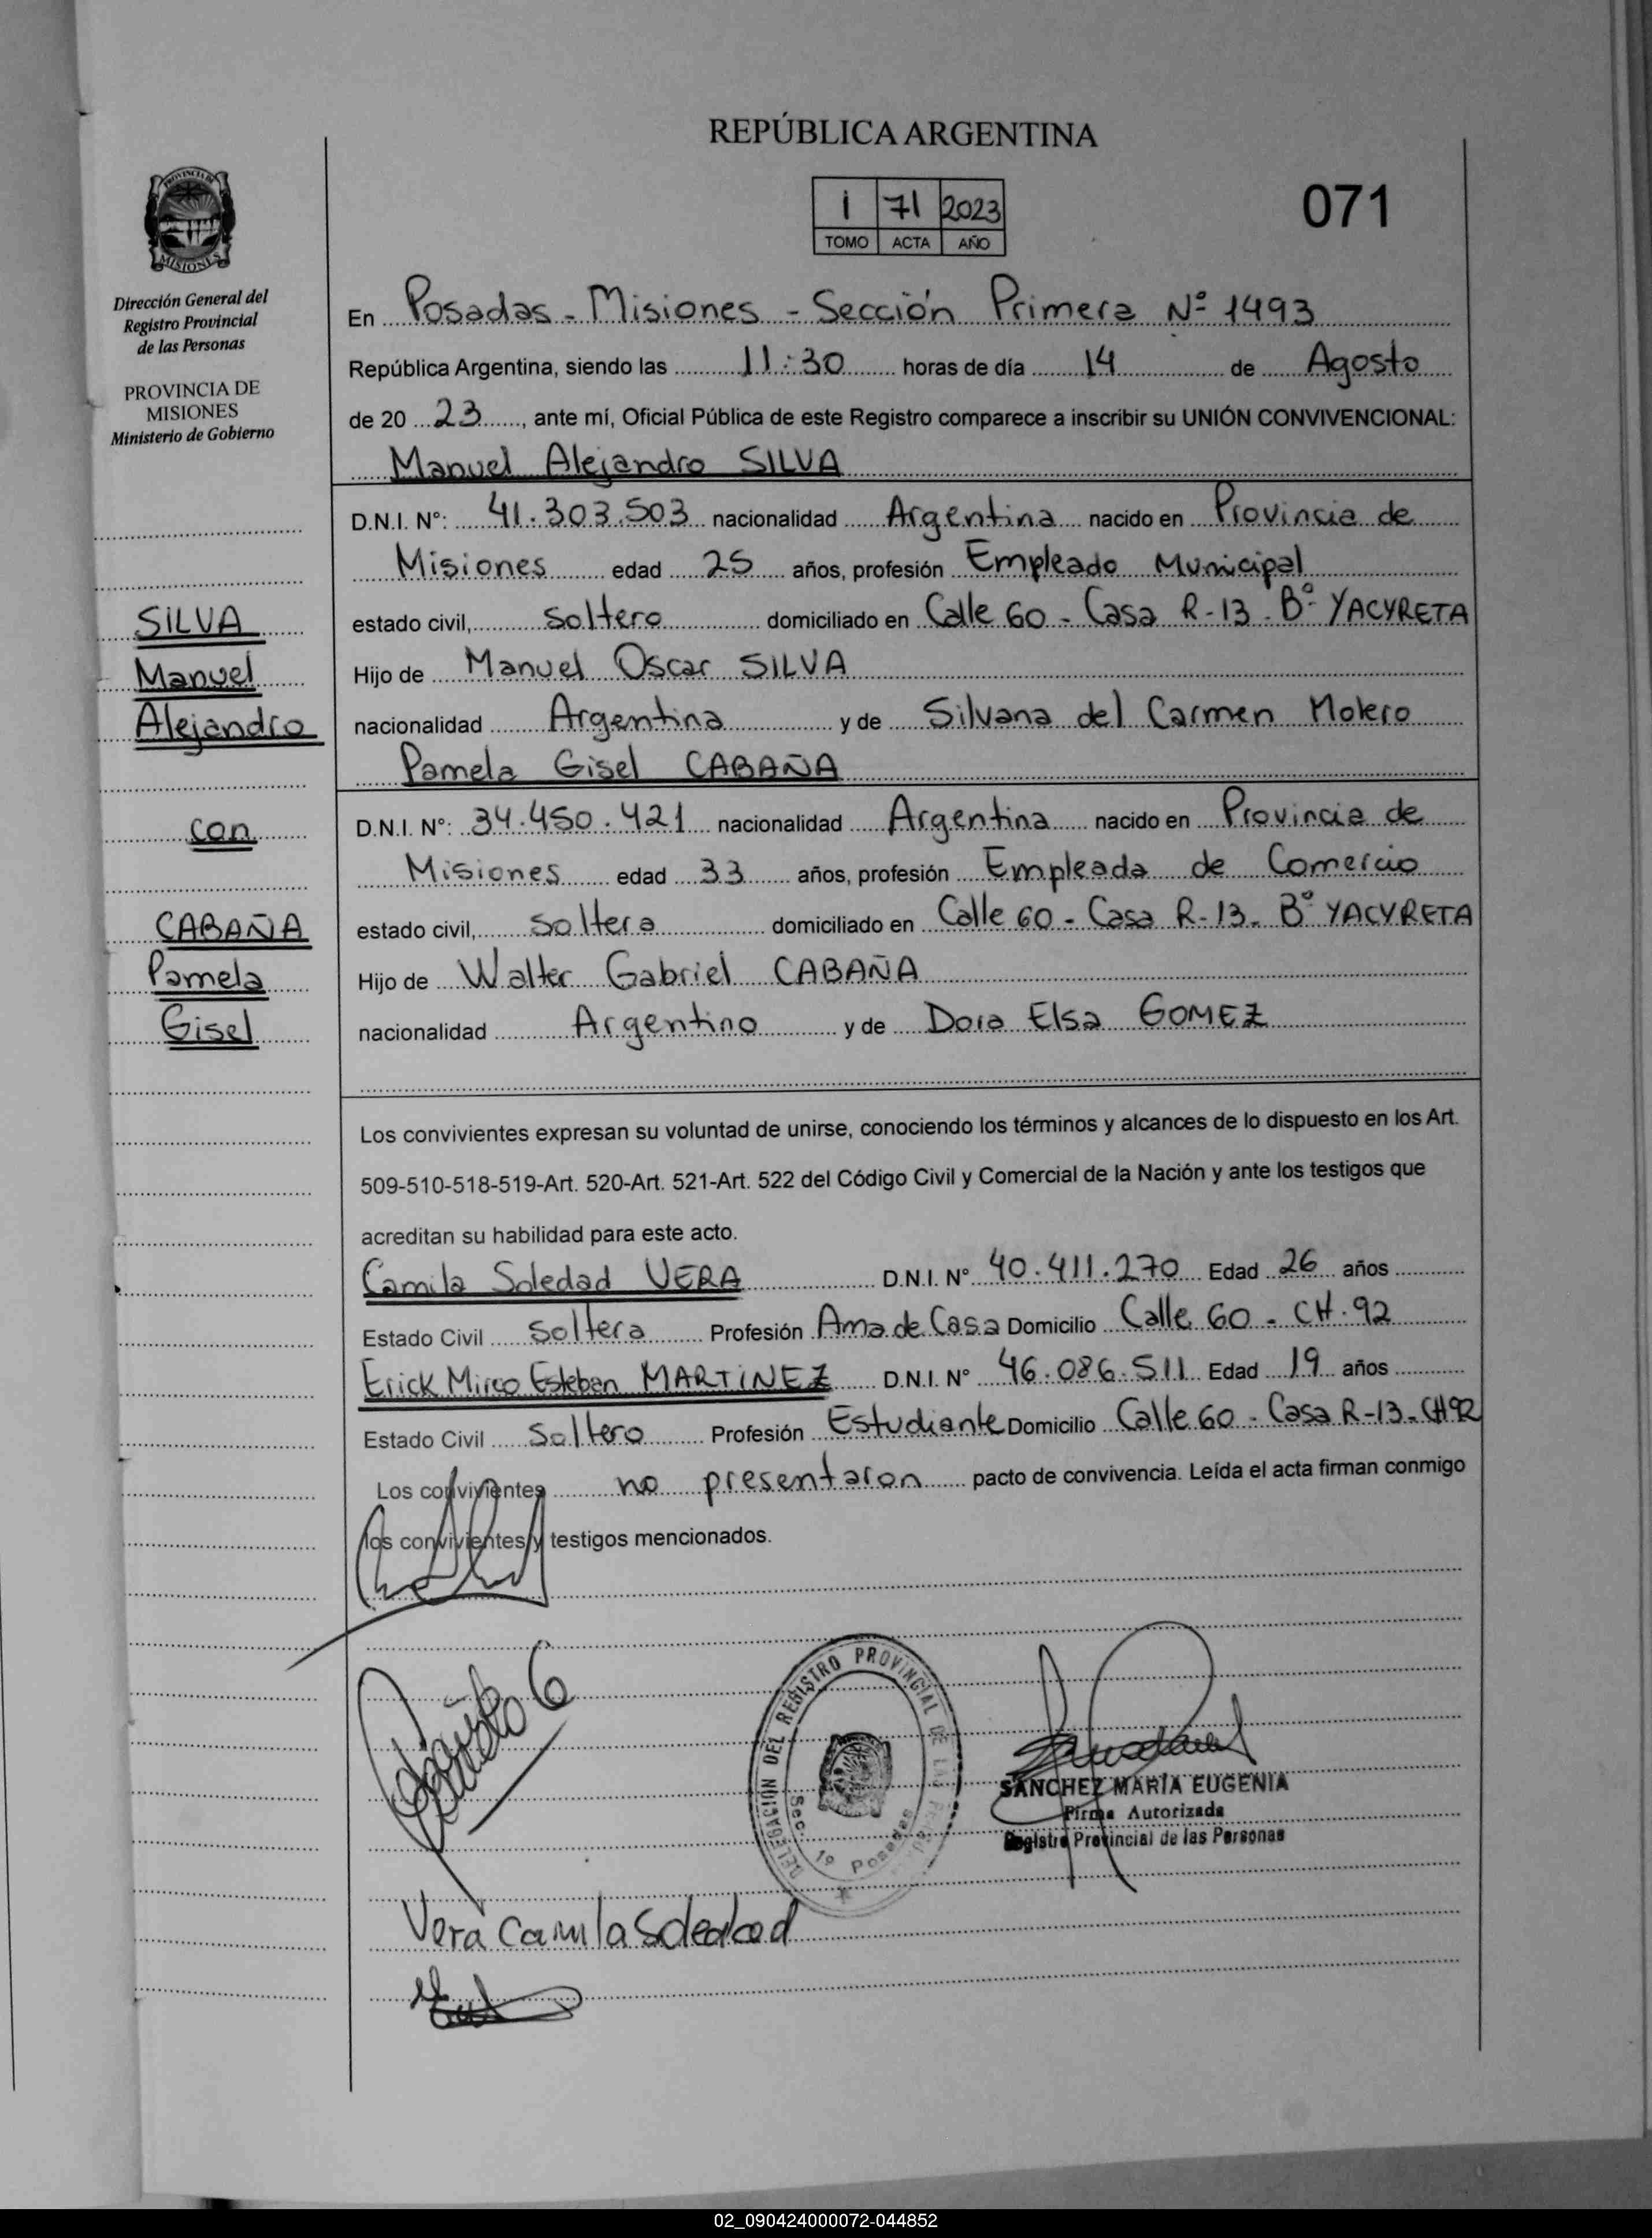 REPÚBLICA ARGENTINA
i 71 2023
TOMO ACTA AÑO
071
PROVINCIA DE
MISIONES
Dirección General del
Registro Provincial
de las Personas
PROVINCIA DE
MISIONES
Ministerio de Gobierno
SILVA
Manuel
Alejandro
con
CABAÑA
Pamela
Gisel
En Posadas - Misiones - Sección Primera Nº 1493
República Argentina, siendo las 11:30 horas de día 14 de Agosto
de 20 23, ante mí, Oficial Pública de este Registro comparece a inscribir su UNIÓN CONVIVENCIONAL:
Manuel Alejandro SILVA
D.N.I. N°: 41.303.503 nacionalidad Argentina nacido en Provincia de
Misiones edad 25 años, profesión Empleado Municipal
estado civil, soltero domiciliado en Calle 60 - Casa R-13 - Bº YACYRETA
Hijo de Manuel Oscar SILVA
nacionalidad Argentina y de Silvana del Carmen Molero
Pamela Gisel CABAÑA
D.N.I. N°: 34.450.421 nacionalidad Argentina nacido en Provincia de
Misiones edad 33 años, profesión Empleada de Comercio
estado civil, soltera domiciliado en Calle 60 - Casa R-13. Bº YACYRETA
Hijo de Walter Gabriel CABAÑA
nacionalidad Argentino y de Dora Elsa GOMEZ
Los convivientes expresan su voluntad de unirse, conociendo los términos y alcances de lo dispuesto en los Art.
509-510-518-519-Art. 520-Art. 521-Art. 522 del Código Civil y Comercial de la Nación y ante los testigos que
acreditan su habilidad para este acto.
Camila Soledad VERA D.N.I. N° 40.411.270 Edad 26 años
Estado Civil soltera Profesión Ama de Casa Domicilio Calle 60 - CH.92
Erick Mirco Esteban MARTINEZ D.N.I. N° 46.086.511 Edad 19 años
Estado Civil Soltero Profesión Estudiante Domicilio Calle 60 - Casa R-13-CH92
Los convivientes no presentaron pacto de convivencia. Leída el acta firman conmigo
los convivientes y testigos mencionados.
DELEGACION DEL REGISTRO PROVINCIAL DE LAS
Sec. 1º Posadas
SANCHEZ MARIA EUGENIA
Firma Autorizada
Registro Provincial de las Personas
Vera Camila Soledad
02_090424000072-044852